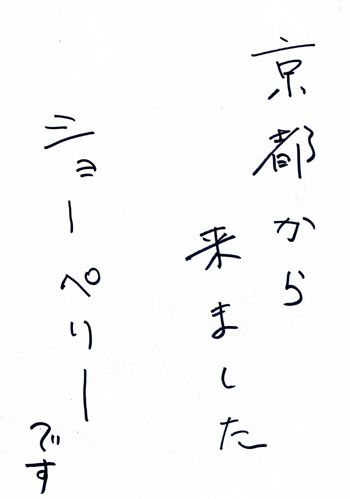 京都から
来ました
ショーペリー
です